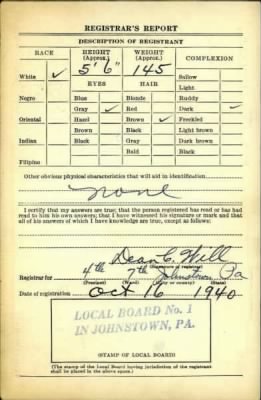 REGISTRAR'S REPORT
DESCRIPTION OF REGISTRANT
RACE HEIGHT (Approx.) WEIGHT (Approx.) COMPLEXION
White ✓ 5' 6" 145 Sallow
EYES HAIR Light
Negro Blue Blonde Ruddy
Gray ✓ Red Dark ✓
Oriental Hazel Brown ✓ Freckled
Brown Black Light brown
Indian Black Gray Dark brown
Bald Black
Filipino
Other obvious physical characteristics that will aid in identification
None
I certify that my answers are true; that the person registered has read or has had
read to him his own answers; that I have witnessed his signature or mark and that
all of his answers of which I have knowledge are true, except as follows:
Dean C. Will
(Signature of registrar)
Registrar for 4th 7th Johnstown Pa
(Precinct) (Ward) (City or county) (State)
Date of registration Oct 16 1940
LOCAL BOARD No. 1
IN JOHNSTOWN, PA.
(STAMP OF LOCAL BOARD)
(The stamp of the Local Board having jurisdiction of the registrant
shall be placed in the above space.)